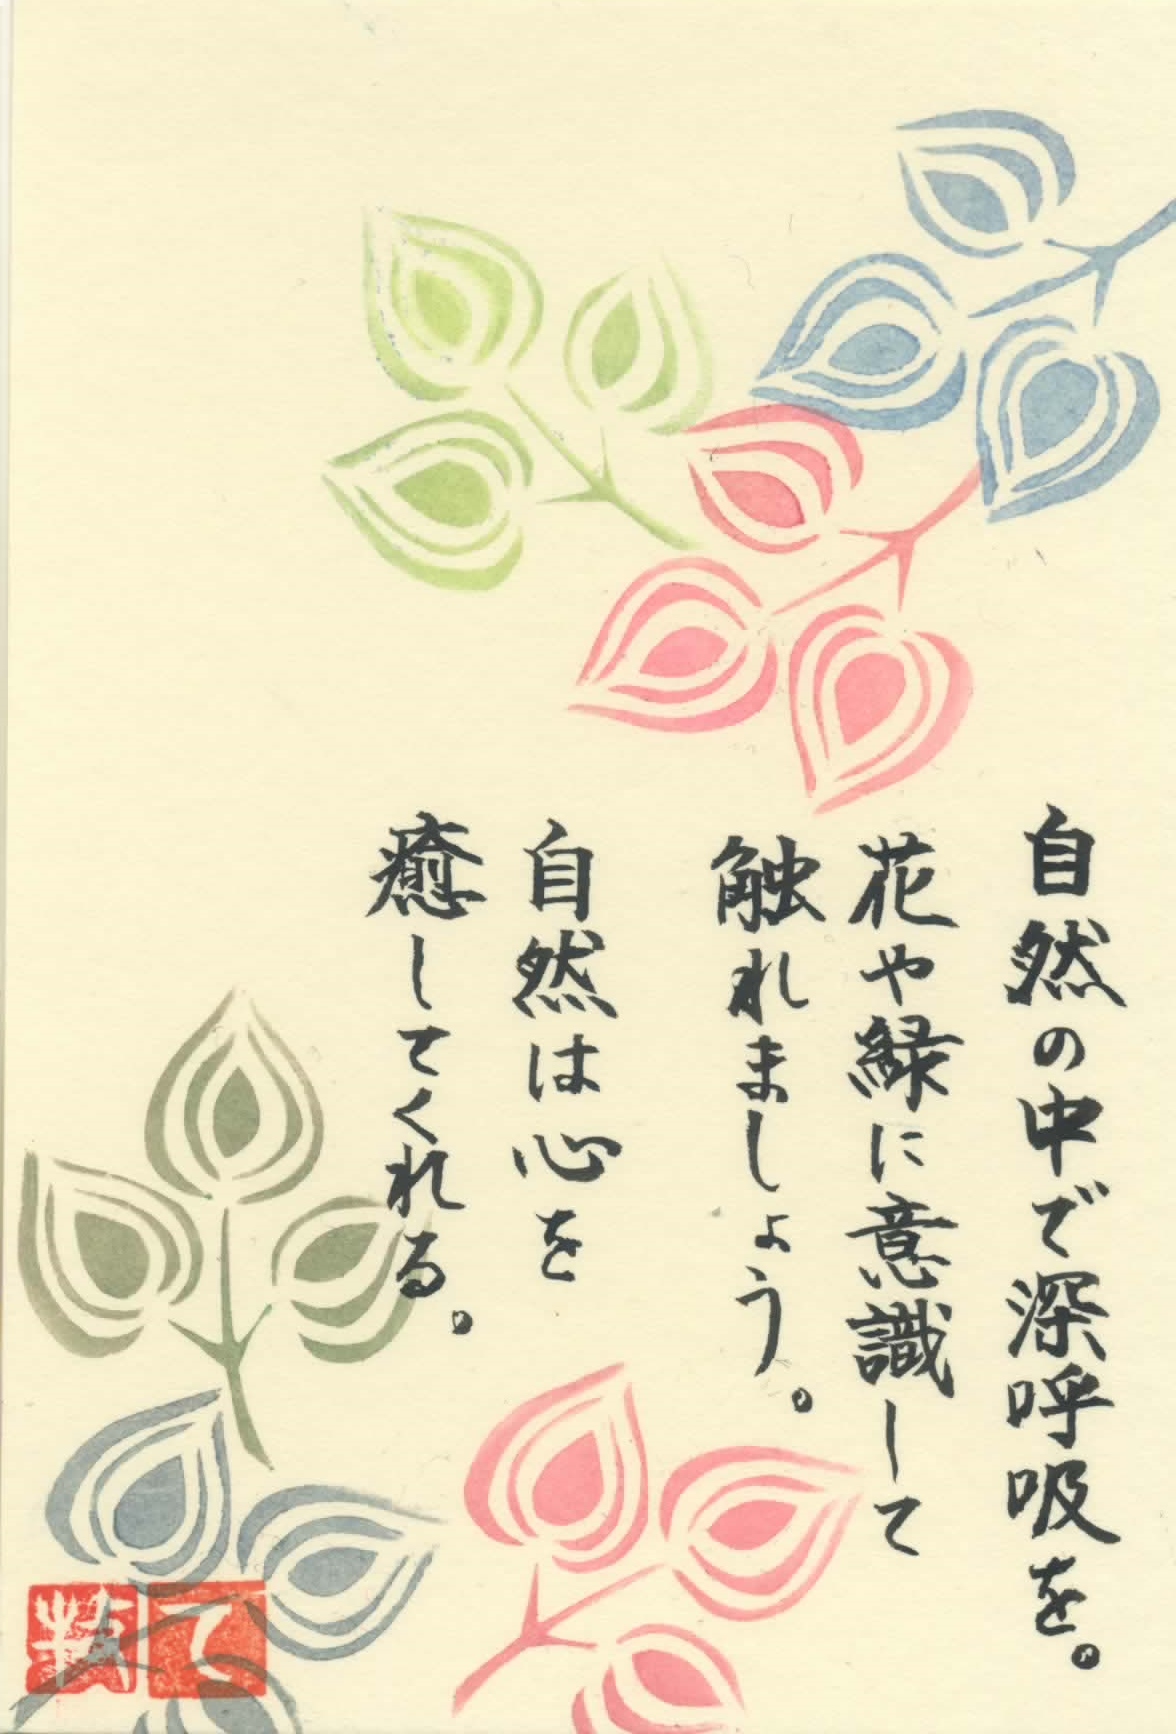 自然の中で深呼吸を。
花や緑に意識して
触れましょう。
自然は心を
癒してくれる。
て